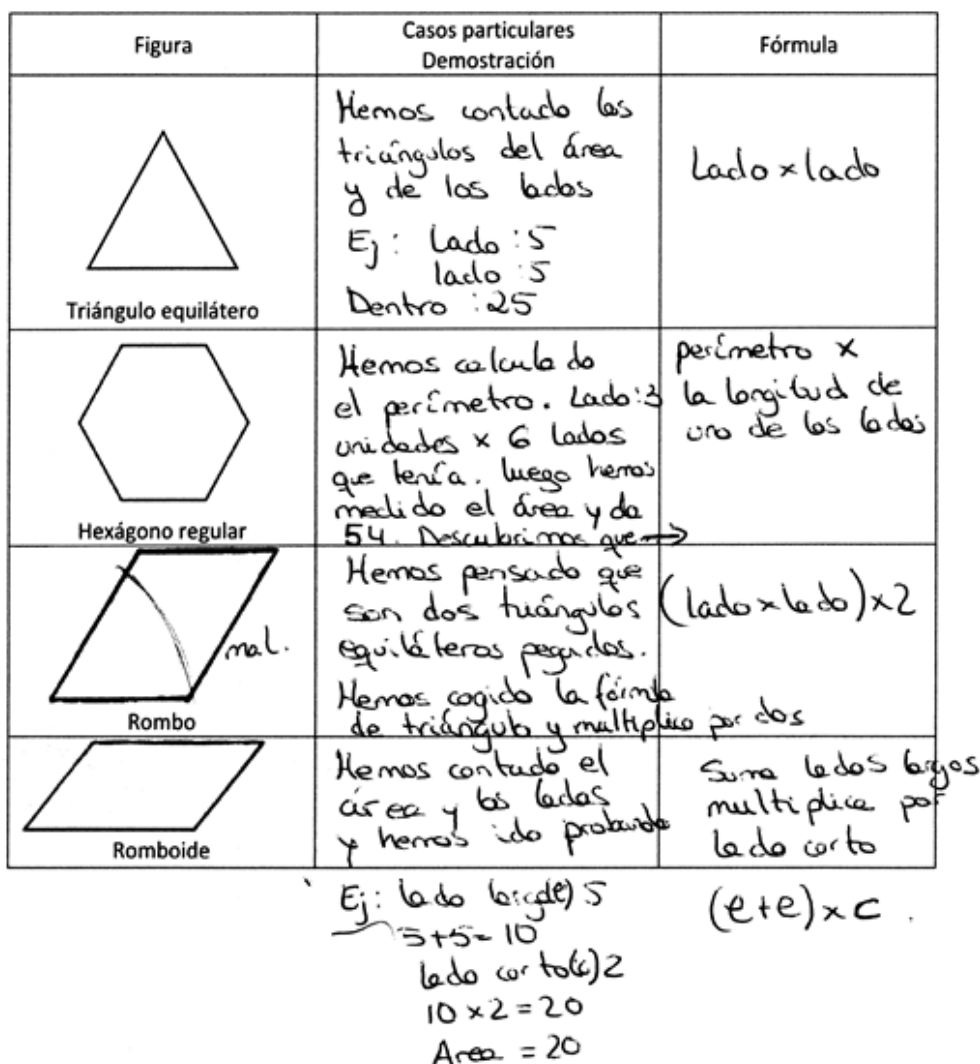 Figura
Casos particulares
Demostración
Fórmula
Triángulo equilátero
Hemos contado los
triángulos del área
y de los lados
Ej: Lado: 5
lado: 5
Dentro: 25
Lado × lado
Hexágono regular
Hemos calculado
el perímetro. Lado: 3
unidades × 6 lados
que tenía. Luego hemos
medido el área y da
54. Descubrimos que →
perímetro ×
la longitud de
uno de los lados
Rombo
mal.
Hemos pensado que
son dos triángulos
equiláteros pegados.
Hemos cogido la fórmula
de triángulo y multiplico por dos
(lado × lado) × 2
Romboide
Hemos contado el
área y los lados
y hemos ido probando
Suma lados largos
multiplica por
lado corto
Ej: lado largo(l) 5
5+5= 10
lado corto(c) 2
10 × 2 = 20
Area = 20
(l+l) × c.